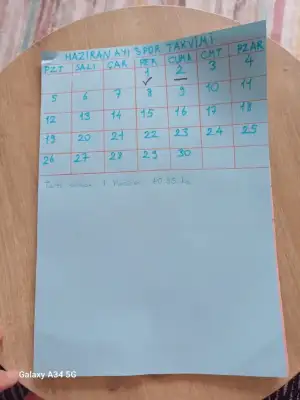 HAZİRAN AYI SPOR TAKVİMİ
PZT SALI ÇAR PER CUMA CMT PZAR
1 2 3 4
5 6 7 8 9 10 11
12 13 14 15 16 17 18
19 20 21 22 23 24 25
26 27 28 29 30
1
Galaxy A34 5G